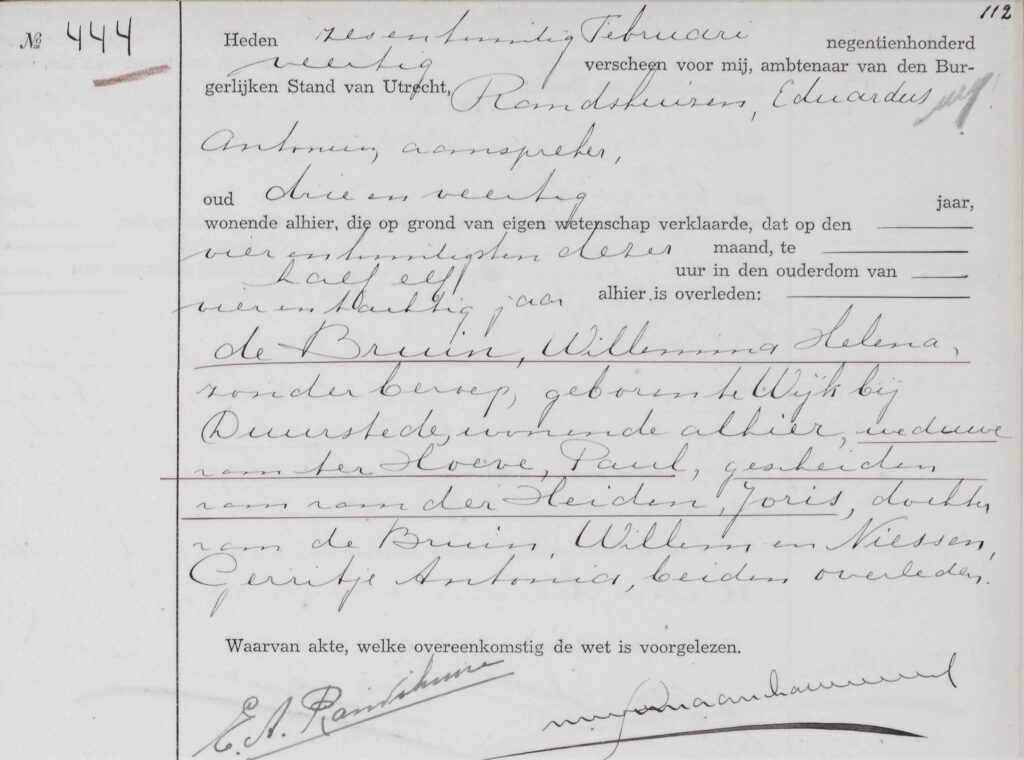 112
No 444
Heden zesentwintig Februari negentienhonderd
veertig verscheen voor mij, ambtenaar van den Bur-
gerlijken Stand van Utrecht, Randshuizen, Eduardus
Antonius, aanspreker,
oud drie en veertig jaar,
wonende alhier, die op grond van eigen wetenschap verklaarde, dat op den
vierentwintigsten dezer maand, te
half elf uur in den ouderdom van
vierentachtig jaar alhier is overleden:
de Bruin, Willemina Helena,
zonder beroep, geboren te Wijk bij
Duurstede, wonende alhier, weduwe
van ter Hoeve, Paul, gescheiden
van van der Heiden, Joris, dochter
van de Bruin, Willem en Niessen,
Gerritje Antonia, beiden overleden.
Waarvan akte, welke overeenkomstig de wet is voorgelezen.
E. A. Randshuize